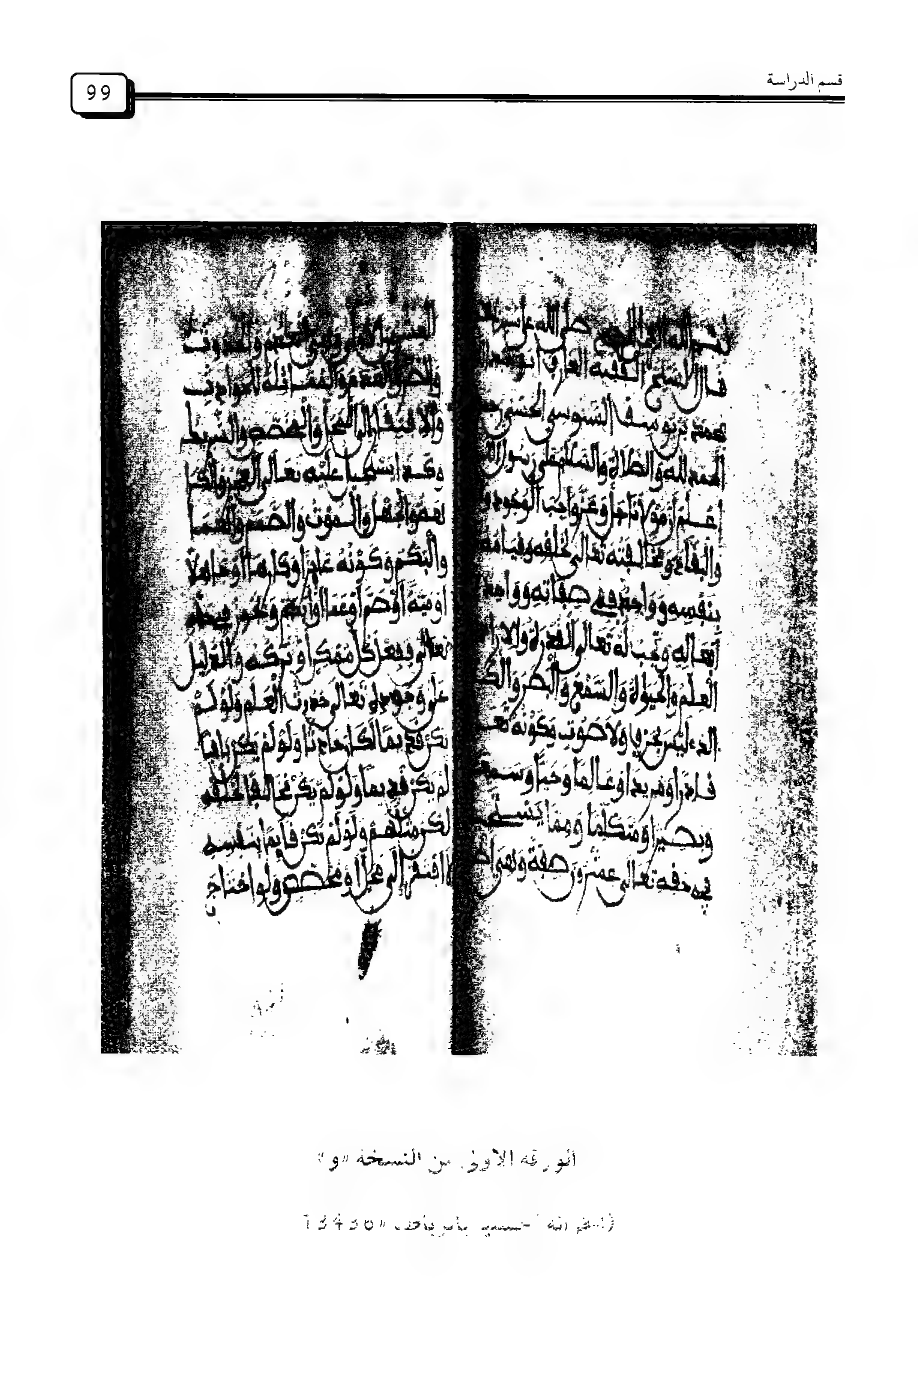 قسم الدراسة
99
بسم الله الرحمن الرحيم صلى الله على
قال الشيخ الفقيه العارف
محمد بن يوسف السنوسي الحسني
الحمد لله والصلاة والسلام على رسول الله
اعلم أن مولانا جل وعز واجب الوجود و
والبقاء ومخالفته تعالى لخلقه وقيامه
بنفسه وواحد في صفاته وواحد
أفعاله وتجب له تعالى القدرة والارا
العلم والحيوة والسمع والبصر والكـ
الذي ليس بحرف ولا صوت وكونه تعـ
قادرا ومريدا وعالما وحيا وسميعا
وبصيرا ومتكلما ومما يستحيل
في حقه تعالى عشرون صفة وهي
والافتقار إلى المحل والمخصص والشريك
وكذا يستحيل عليه تعالى العجز والكرا
هة والجهل والموت والصمم والعمى
والبكم وكونه عاجزا وكارها أو جاهلا
أو ميتا أو أصم أو أعمى أو أبكم ويجوز في حقه
تعالى فعل كل ممكن أو تركه والدليل
على وجوده تعالى حدوث العالم ولو لم
يكن قديما لكان حادثا ولو لم يكن باقيا
لم يكن قديما ولو لم يكن مخالفا لخلقه
لكان مثلهم ولو لم يكن قائما بنفسه
لافتقر إلى محل أو مخصص ولو احتاج
الورقة الأولى من النسخة «و»
(الخزانة الحسنية بالرباط «13430